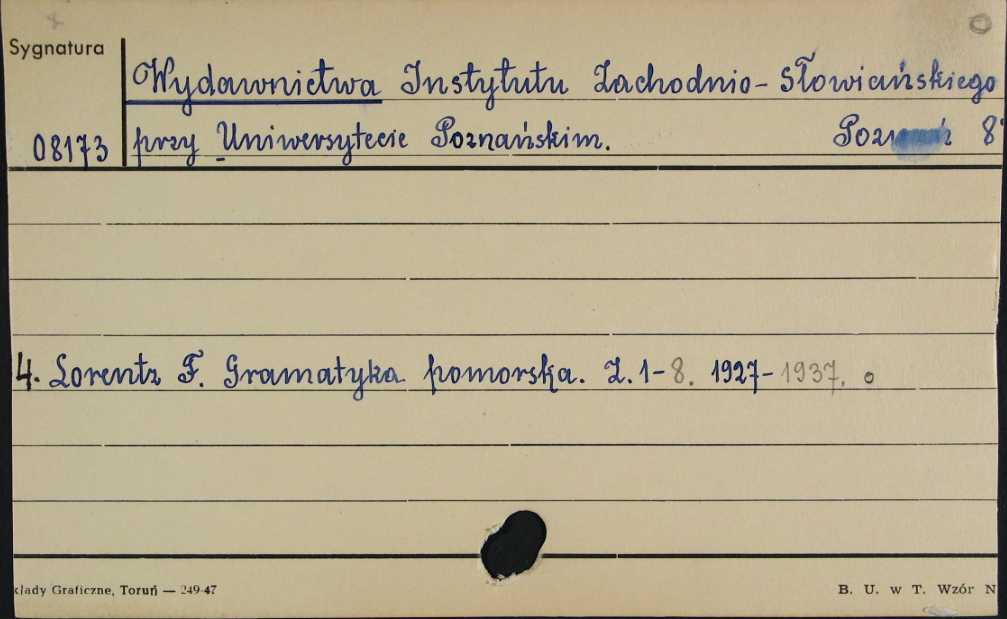 Sygnatura
Wydawnictwa Instytutu Zachodnio-Słowiańskiego
08173 przy Uniwersytecie Poznańskim. Poznań 8°
4. Lorentz F. Gramatyka pomorska. Z. 1-8. 1927-1937.
kłady Graficzne, Toruń — 249-47 B. U. w T. Wzór N